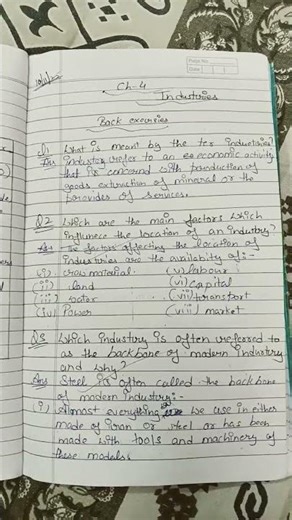 Page No.
Date
10/11/22
Ch-4
Industries
Back exercies
Q1 What is meant by the ter industries?
Ans Industry refer to an economic activity
that is concerned with production of
goods extration of mineral or the
provides of services.
Q2 Which are the main factors which
influnece the location of an industry?
Ans The factors affecting the location of
industries are the availability of:-
(i) raw material (v) labour
(ii) land (vi) capital
(iii) water (vii) transport
(iv) Power (viii) market
Q3 Which industry is often refered to
as the backbone of modern industry
and why?
Ans Steel is often called the backbone
of modern industry:-
(i) Almost everything we use in either
made of iran or steel or has been
made with tools and machinery of
these modals.